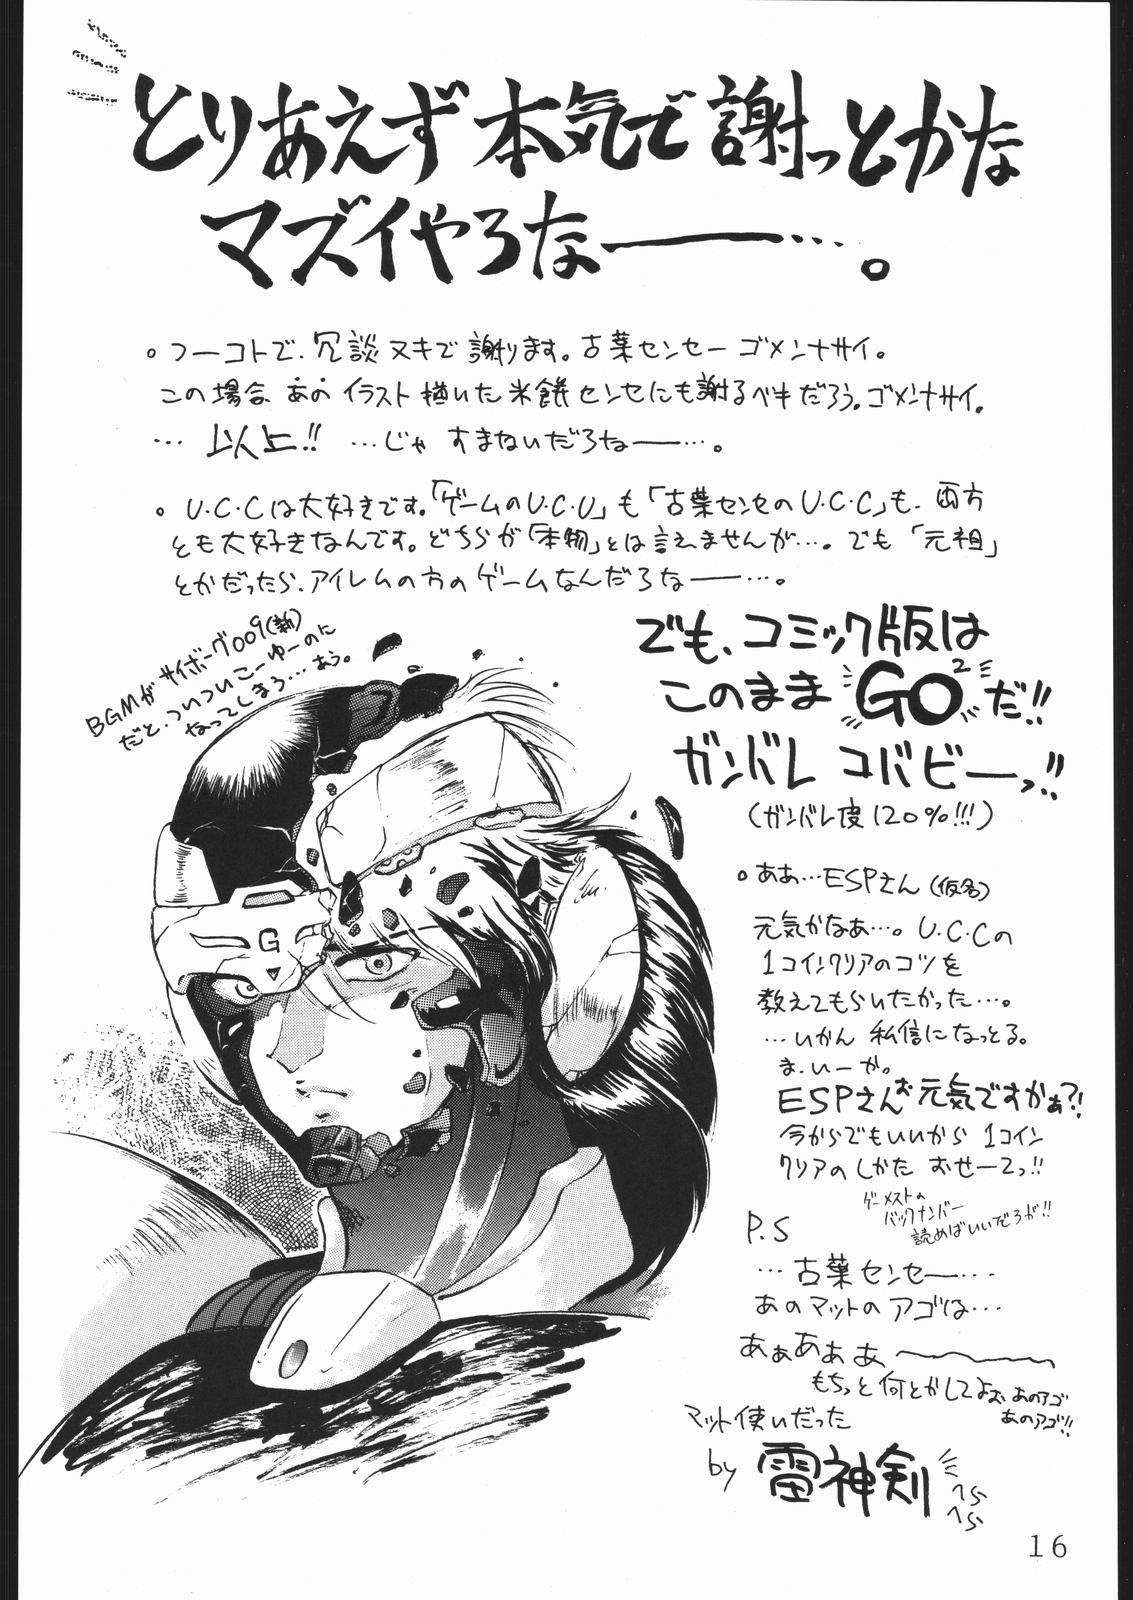 とりあえず本気で謝っとかな
マズイやろなー……。
。フーコトで、冗談ヌキで謝ります。古葉センセー ゴメンナサイ。
この場合、あのイラスト描いた米餅センセにも謝るべきだろう。ゴメンナサイ。
… 以上!! …じゃ すまねいだろなー……。
。U.C.Cは大好きです。「ゲームのU.C.U」も「古葉センセのU.C.C」も、両方
とも大好きなんです。どちらが「本物」とは言えませんが…。でも「元祖」
とかだったら、アイレムの方のゲームなんだろなー……。
BGMがサイボーグ009(新)
だと、ついついこーゆーのに
なってしまう…あう。
でも、コミック版は
このままGO²だ!!
ガンバレ コバビーーっ!!
(ガンバレ度120%!!!)
。ああ…ESPさん(仮名)
元気かなあ…。U.C.Cの
1コインクリアのコツを
教えてもらいたかった…。
…いかん 私信になっとる。
ま、いーか。
ESPさんお元気ですかぁ?!
今からでもいいから 1コイン
クリアのしかた おせーてっ!!
ゲーメストの
バックナンバー
読めばいいだろが!!
P.S
…古葉センセー…
あのマットのアゴは…
あぁあぁあ、〜〜〜
もちっと何とかしてよぉ、あのアゴ
あのアゴ!!
マット使いだった
by 雷神剣
へらへら
16